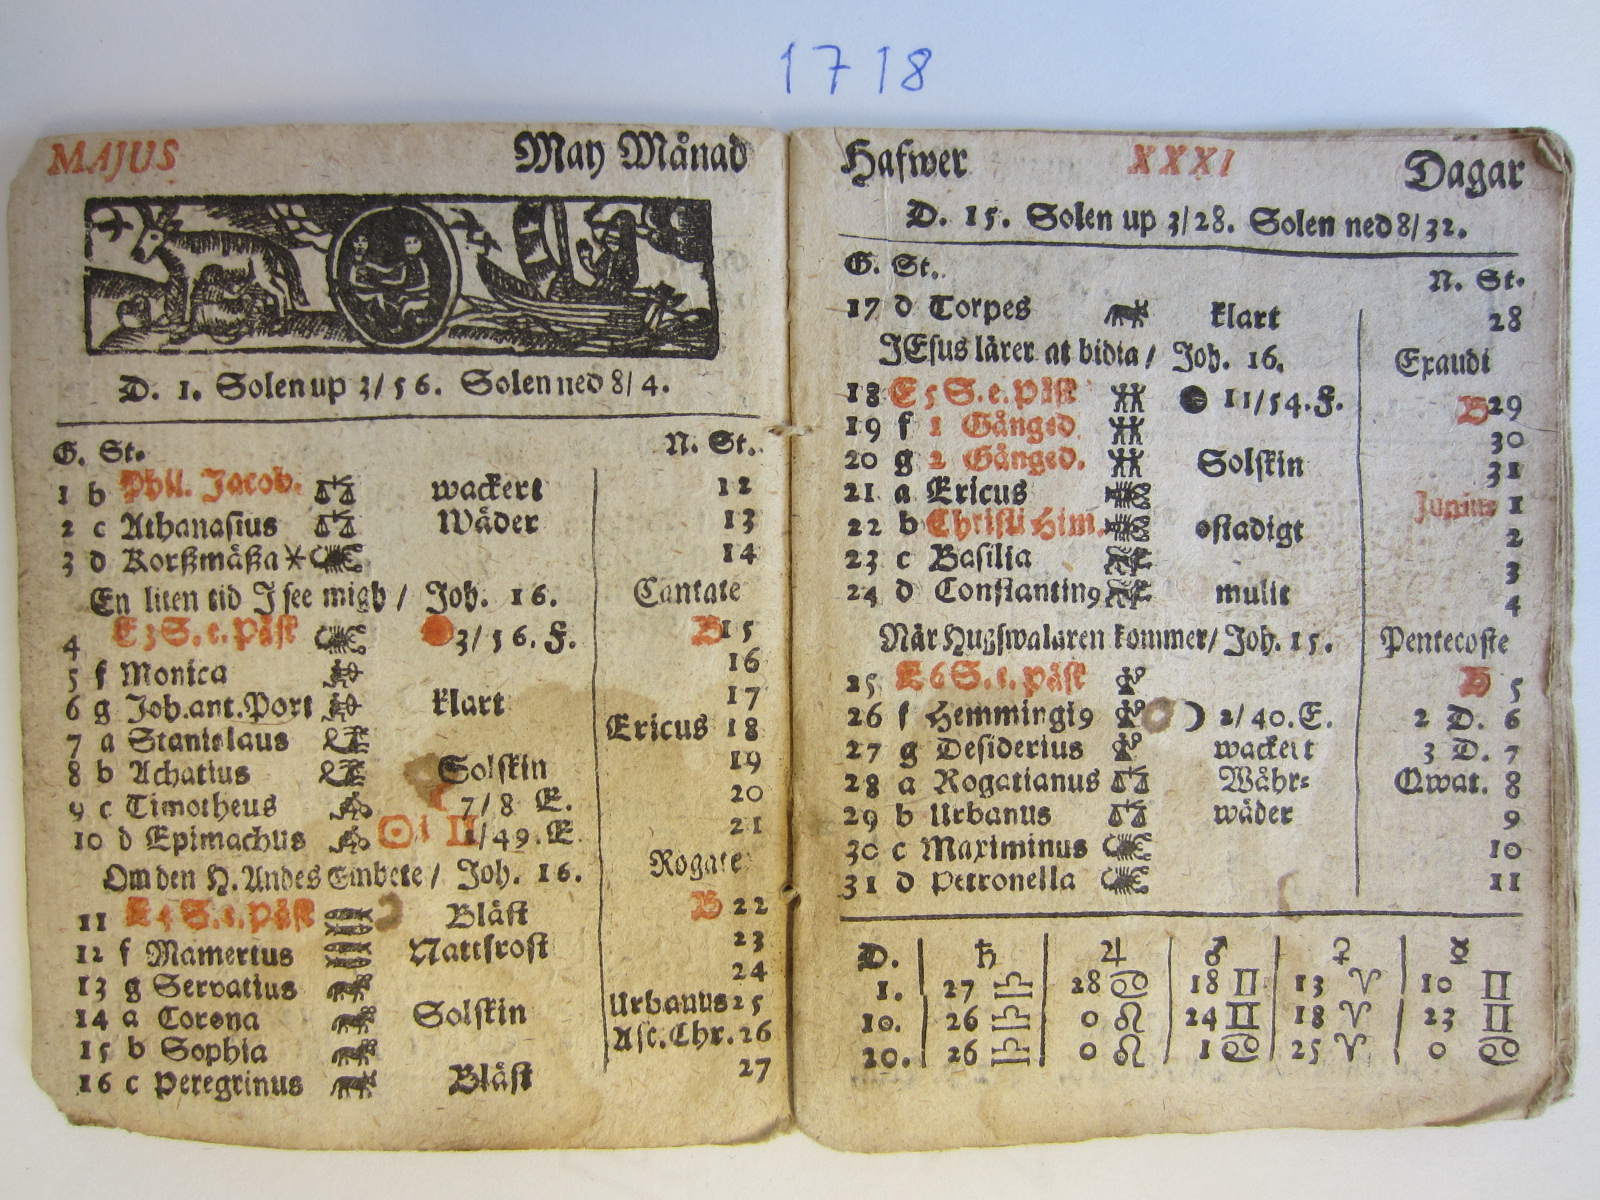 1718
MAJUS May Månad
D. 1. Solen up 3/56. Solen ned 8/4.
G. St. N. St.
1 b Phil. Jacob. wackert 12
2 c Athanasius Wäder 13
3 d Korßmäßa 14
En liten tid I see migh / Joh. 16. Cantate
4 E 3 S. e. Påsk 3/56. F. B 15
5 f Monica 16
6 g Joh.ant.Port klart 17
7 a Stanislaus Ericus 18
8 b Achatius Solskin 19
9 c Timotheus 7/8 E. 20
10 d Epimachus ☉ i ♊ 1/49. E 21
Om den H. Andes Embete / Joh. 16. Rogate
11 E 4 S. e. Påsk Bläst B 22
12 f Mamertus Nattfrost 23
13 g Servatius 24
14 a Corona Solskin Urbanus 25
15 b Sophia Asc. Chr. 26
16 c Peregrinus Bläst 27
Hafwer XXXI Dagar
D. 15. Solen up 3/28. Solen ned 8/32.
G. St. N. St.
17 d Torpes klart 28
JEsus lärer at bidia / Joh. 16. Exaudi
18 E 5 S. e. Påsk ● 11/54. F. B 29
19 f 1 Gånged 30
20 g 2 Gånged. Solskin 31
21 a Ericus Junius 1
22 b Christi Him. ostadigt 2
23 c Basilia 3
24 d Constantin9 mulit 4
När Hugswalaren kommer / Joh. 15. Pentecoste
25 E 6 S. e. Påsk B 5
26 f Hemmingi9 ☽ 2/40. E. 2 D. 6
27 g Desiderius wackert 3 D. 7
28 a Rogatianus Währ- Qwat. 8
29 b Urbanus wäder 9
30 c Maximinus 10
31 d Petronella 11
D. ♄ ♃ ♂ ♀ ☿
1. 27 ♎ 28 ♋ 18 ♊ 13 ♈ 10 ♊
10. 26 ♎ 0 ♌ 24 ♊ 18 ♈ 23 ♊
20. 26 ♎ 0 ♌ 1 ♋ 25 ♈ 0 ♋